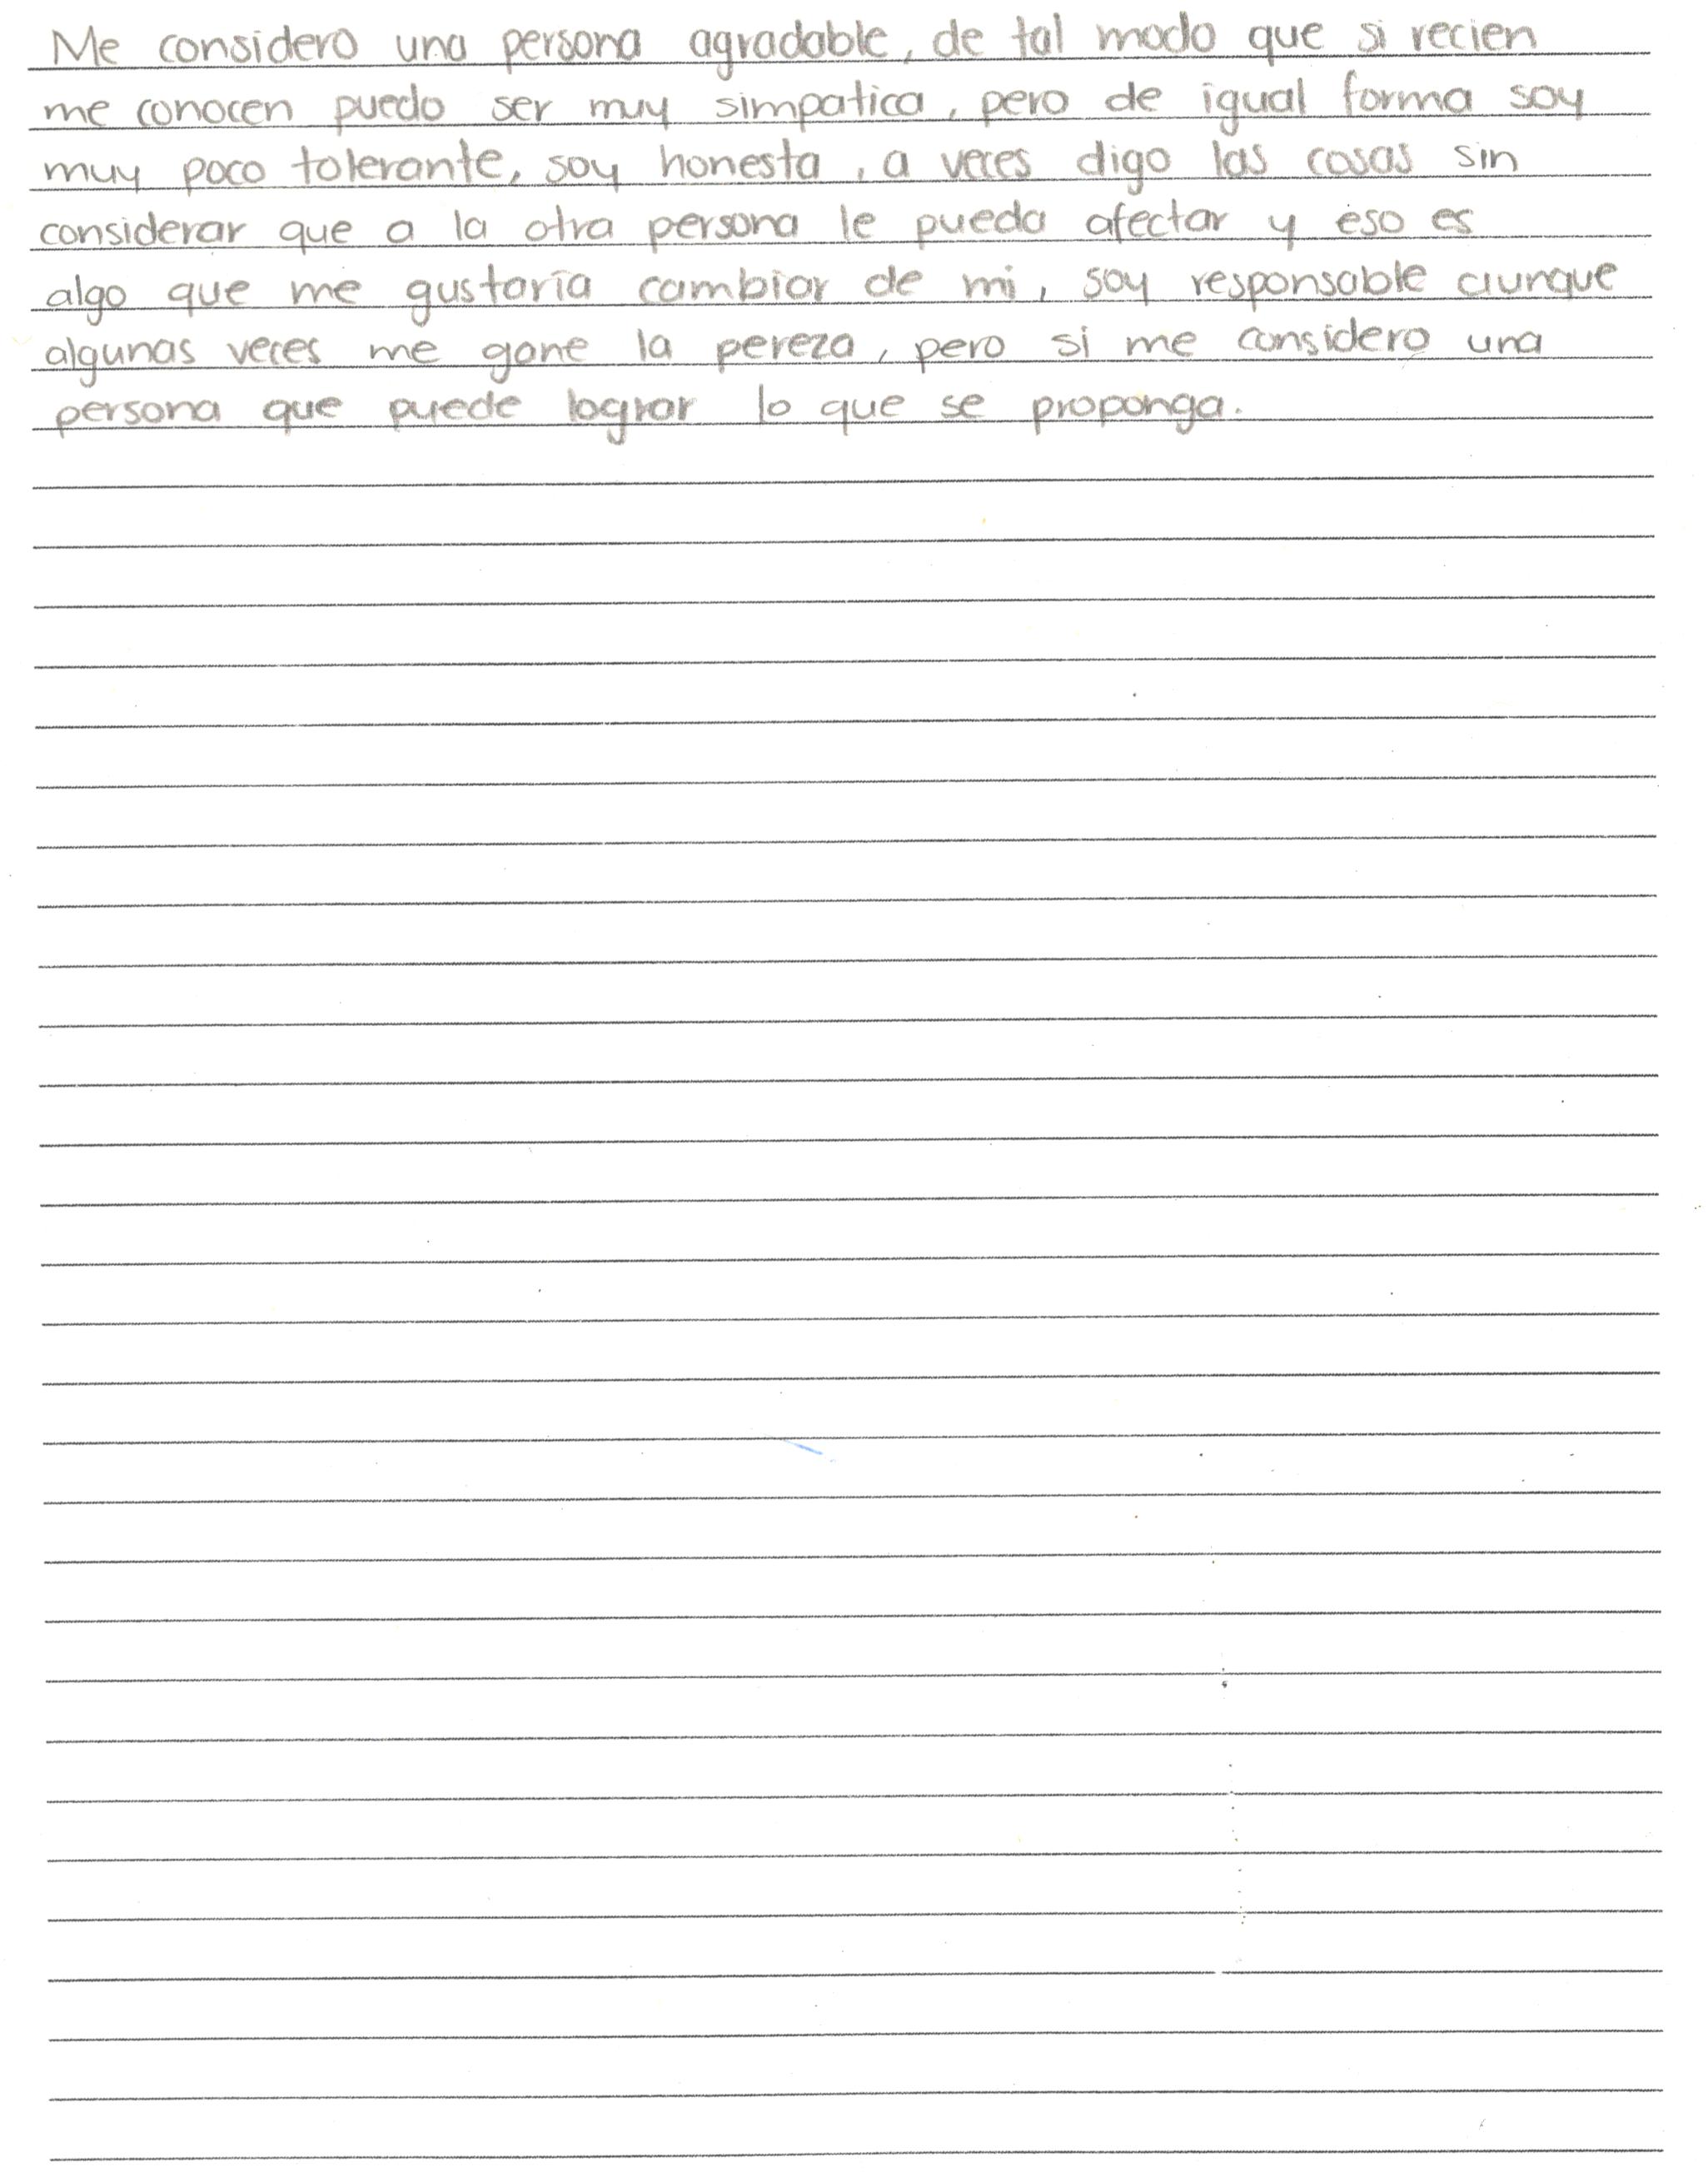 Me considero una persona agradable, de tal modo que si recien
me conocen puedo ser muy simpatica, pero de igual forma soy
muy poco tolerante, soy honesta, a veces digo las cosas sin
considerar que a la otra persona le pueda afectar y eso es
algo que me gustaría cambiar de mi, soy responsable aunque
algunas veces me gane la pereza, pero si me considero una
persona que puede lograr lo que se proponga.